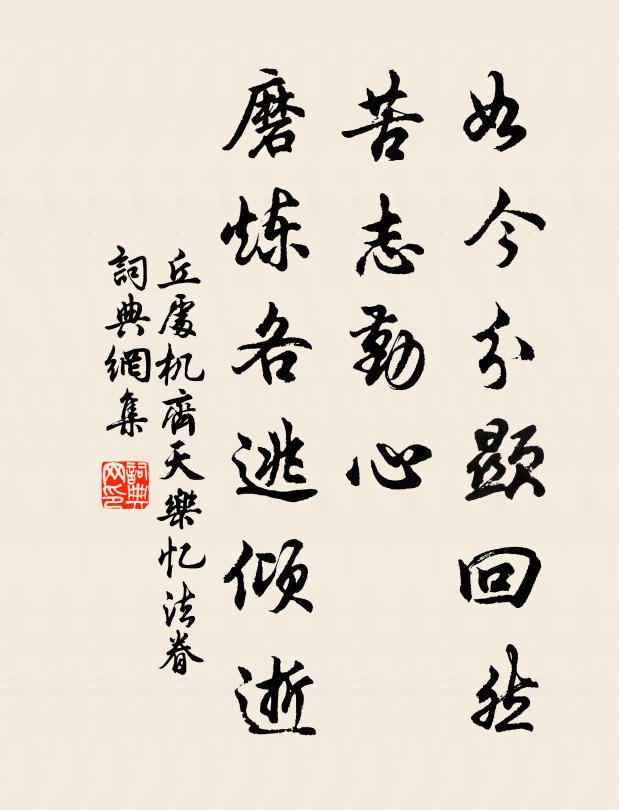 如今分顯回然
苦志勤心
磨炼各逃倾逝
丘處机齊天樂忆法眷
詞典網集
詞典网印